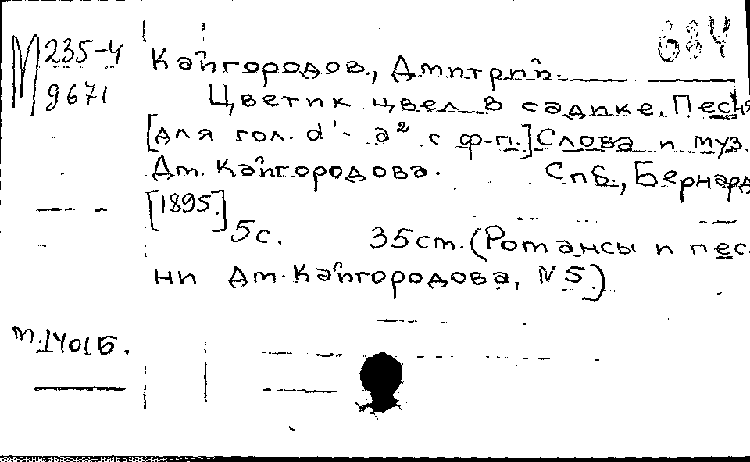 М 235-4
9671
684
Кайгородов, Дмитрий.
Цветик цвел в садике. Песня
[для гол. d¹- a² с ф-п.] Слова и муз.
Дм. Кайгородова. Спб., Бернард
[1895.]
5с. 35cm. (Романсы и пес-
ни Дм. Кайгородова, N5)